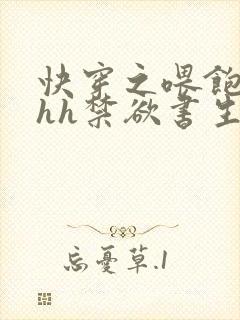 快穿之喂飽
hh禁欲書生
忘憂草.1